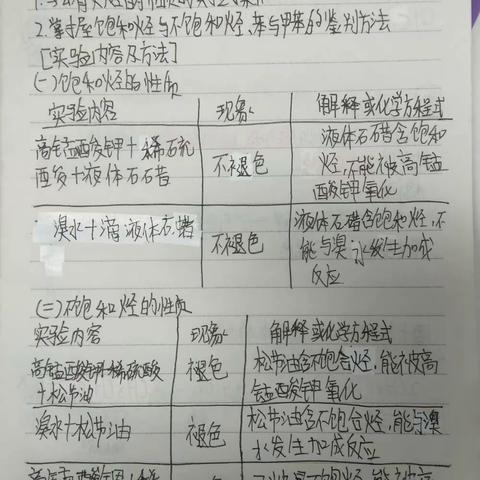 2.掌握饱和烃与不饱和烃、苯与甲苯的鉴别方法
[实验内容及方法]
(一)饱和烃的性质
实验内容 现象 解释或化学方程式
高锰酸钾+稀硫酸+液体石蜡 不褪色 液体石蜡含饱和烃,不能被高锰酸钾氧化
溴水+滴液体石蜡 不褪色 液体石蜡含饱和烃,不能与溴水发生加成反应
(二)不饱和烃的性质
实验内容 现象 解释或化学方程式
高锰酸钾+稀硫酸+松节油 褪色 松节油含不饱合烃,能被高锰酸钾氧化
溴水+松节油 褪色 松节油含不饱合烃,能与溴水发生加成反应